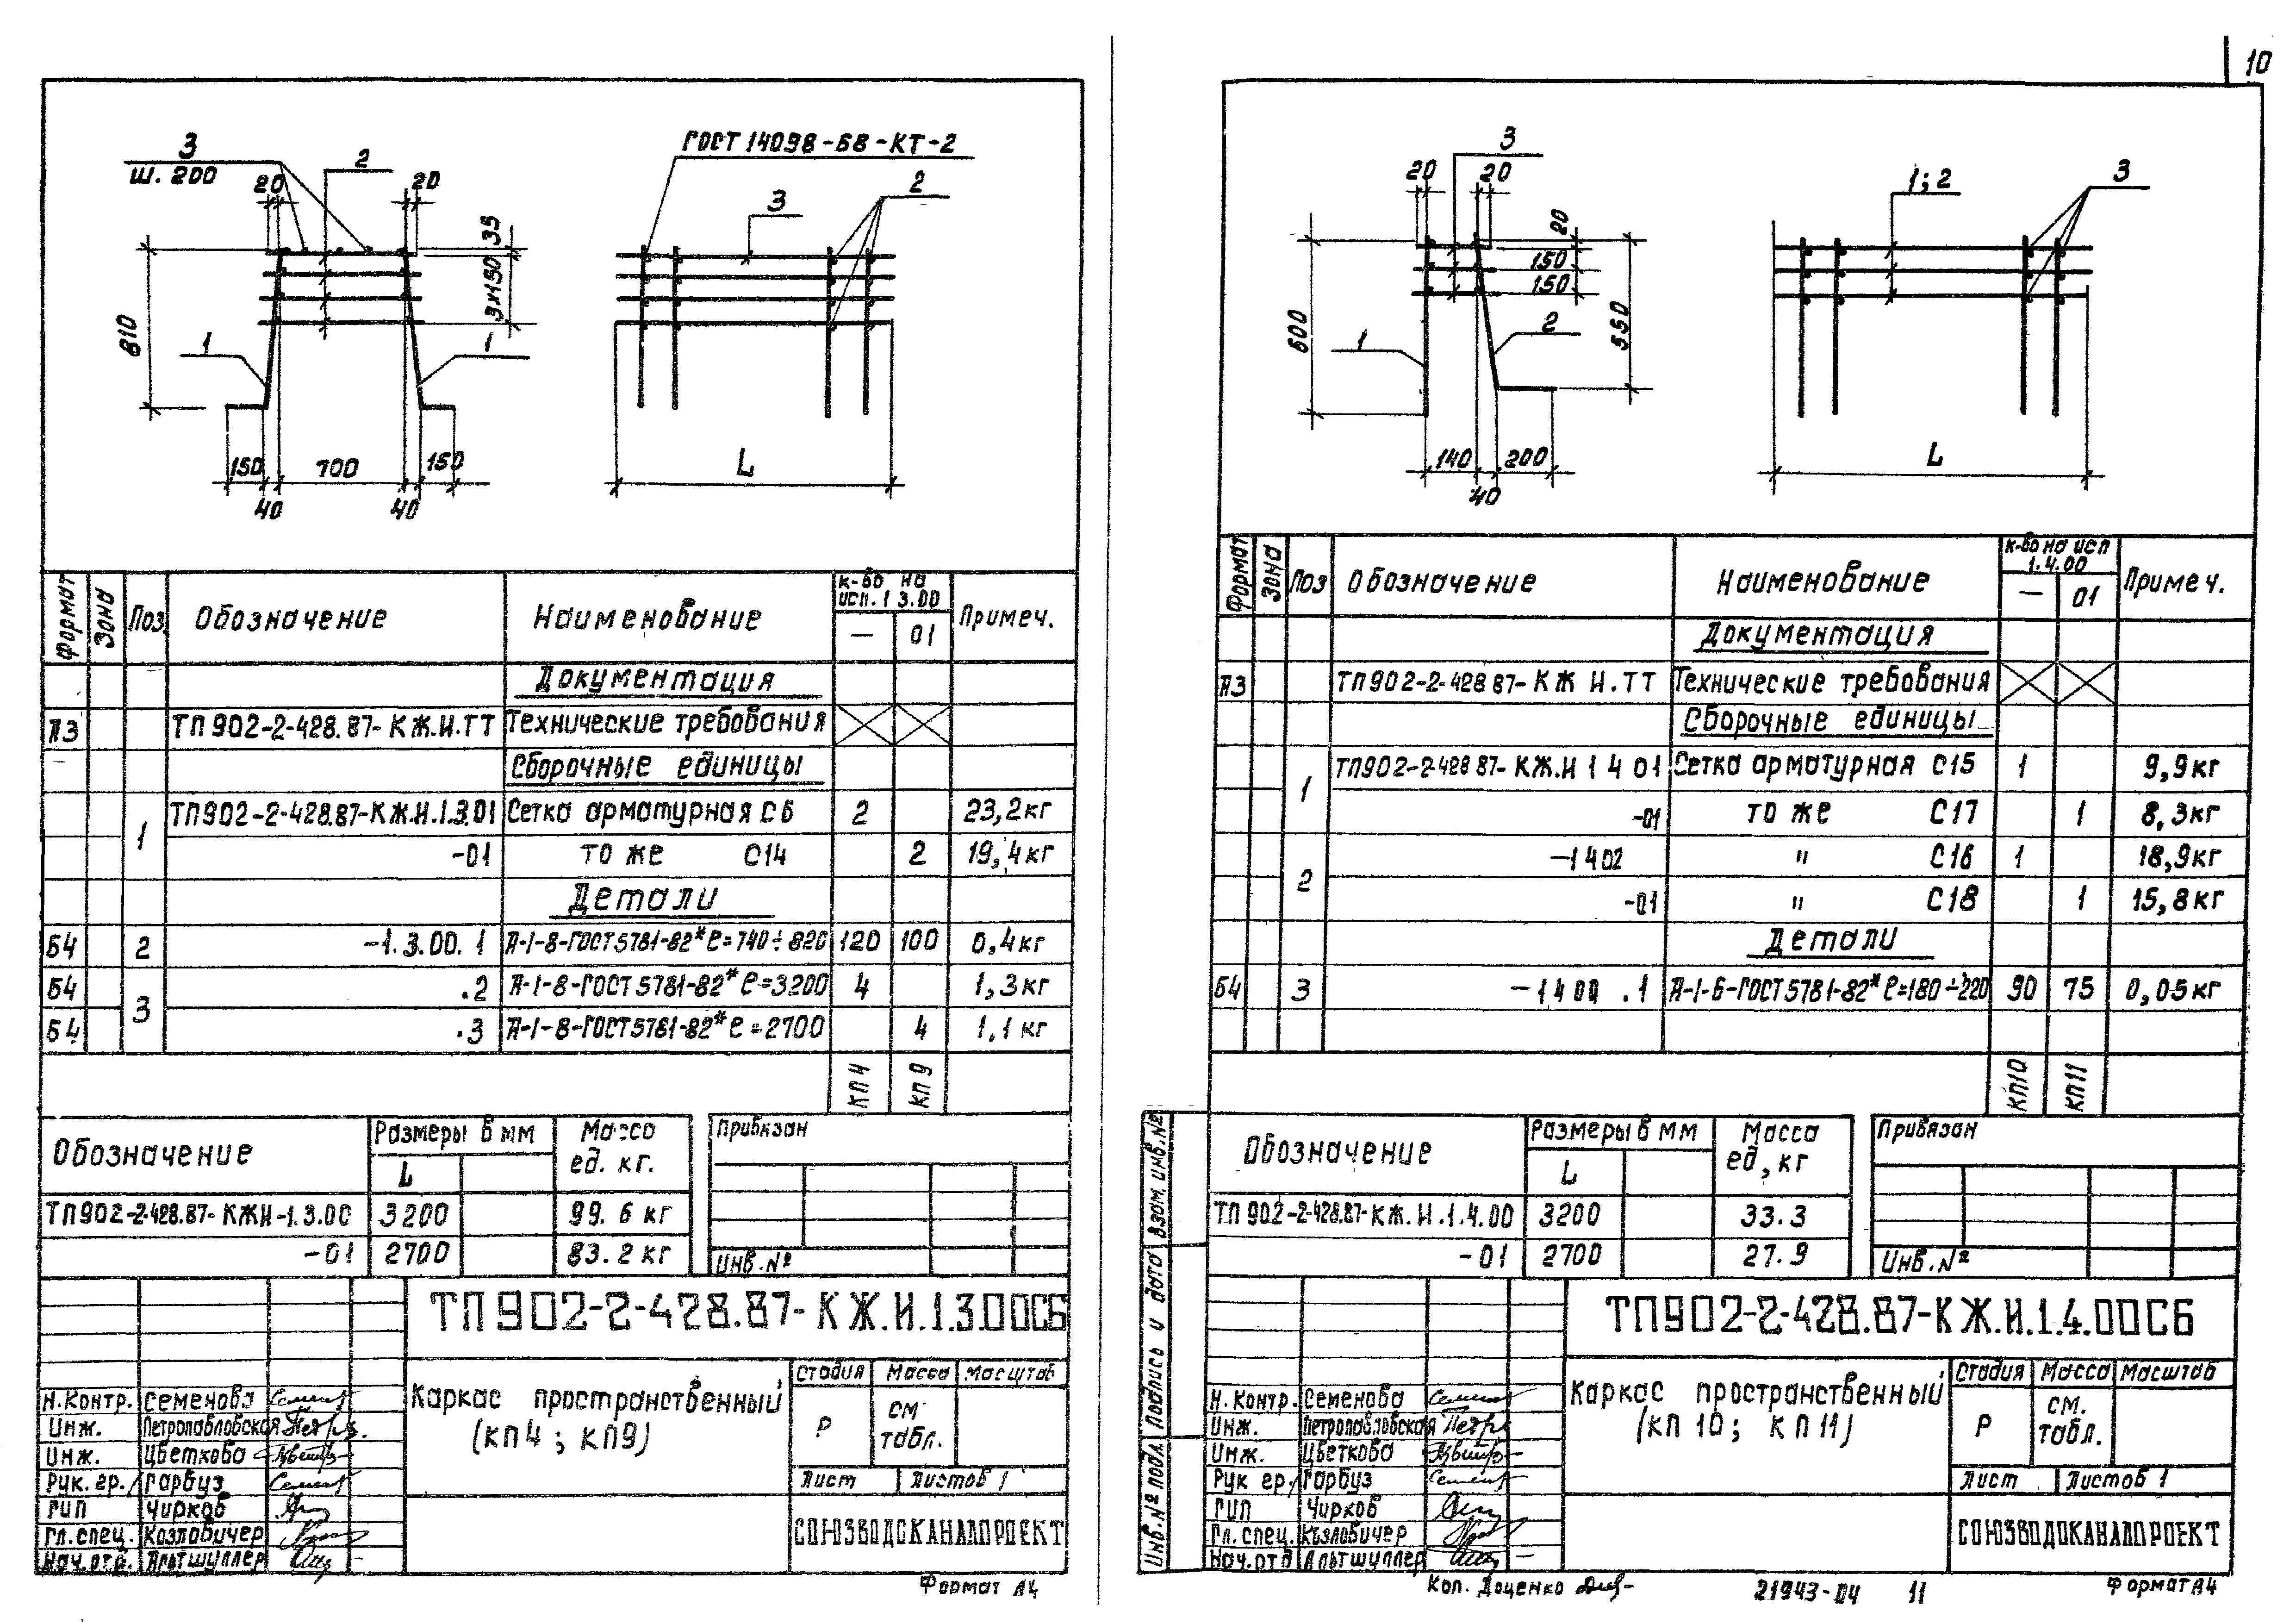 10
3
ш. 200
2
20
20
35
3х150
810
1
1
150
700
150
40
40
ГОСТ 14098-68-КТ-2
3
2
L
Формат
Зона
Поз.
Обозначение
Наименование
к-во на исп. 1 3.00
—
01
Примеч.
Документация
А3 ТП902-2-428.87-КЖ.И.ТТ Технические требования
Сборочные единицы
1 ТП902-2-428.87-КЖ.И.1.3.01 Сетка арматурная С6 2 23,2кг
-01 то же С14 2 19,4кг
Детали
Б4 2 -1.3.00.1 А-1-8-ГОСТ5781-82* ℓ=740÷820 120 100 0,4кг
Б4 3 .2 А-1-8-ГОСТ5781-82* ℓ=3200 4 1,3кг
Б4 .3 А-1-8-ГОСТ5781-82* ℓ=2700 4 1,1 кг
КП4
КП9
Обозначение
Размеры в мм
L
Масса ед. кг.
ТП902-2-428.87-КЖИ-1.3.00 3200 99.6 кг
-01 2700 83.2 кг
Привязан
Инв.№
ТП902-2-428.87-КЖ.И.1.3.00СБ
Каркас пространственный
(КП4; КП9)
Стадия Масса Масштаб
Р см. табл.
Лист Листов 1
СОЮЗВОДОКАНАЛПРОЕКТ
Н.Контр. Семенова
Инж. Петропавловская
Инж. Цветкова
Рук. гр. Гарбуз
ГИП Чирков
Гл.спец. Козловичер
Нач.отд. Альтшуллер
Формат А4
3
20
20
20
150
150
600
550
1
2
140
200
40
1; 2
3
L
Формат
Зона
Поз
Обозначение
Наименование
к-во на исп 1.4.00
—
01
Примеч.
Документация
А3 ТП902-2-428 87-КЖ И.ТТ Технические требования
Сборочные единицы
1 ТП902-2-428 87-КЖ.И 1 4 01 Сетка арматурная С15 1 9,9кг
-01 то же С17 1 8,3кг
2 -1 4 02 " С16 1 18,9кг
-01 " С18 1 15,8кг
Детали
Б4 3 -1 4 00 .1 А-1-6-ГОСТ5781-82* ℓ=180÷220 90 75 0,05кг
КП10
КП11
Обозначение
Размеры в мм
L
Масса ед, кг
ТП 902-2-428.87-КЖ.И.1.4.00 3200 33.3
-01 2700 27.9
Привязан
Инв.№
ТП902-2-428.87-КЖ.И.1.4.00СБ
Каркас пространственный
(КП 10; КП11)
Стадия Масса Масштаб
Р см. табл.
Лист Листов 1
СОЮЗВОДОКАНАЛПРОЕКТ
Н.Контр. Семенова
Инж. Петропавловская
Инж. Цветкова
Рук гр. Гарбуз
ГИП Чирков
Гл.спец. Козловичер
Нач.отд Альтшуллер
Взам. инв.№
Подпись и дата
Инв.№ подл.
Коп. Доценко
21943-04 11
Формат А4